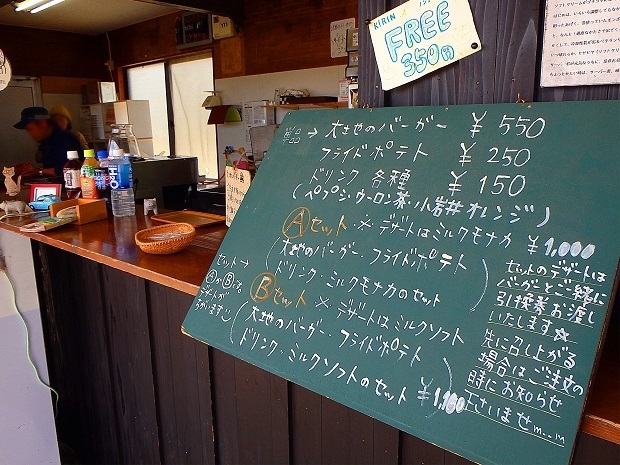 KIRIN
FREE
350円
単品 → 大地のバーガー ¥550
フライドポテト ¥250
ドリンク 各種 ¥150
(ペプシ・ウーロン茶・小岩井オレンジ)
Ⓐセット ※デザートはミルクモナカ ¥1,000
(大地のバーガー・フライドポテト
ドリンク・ミルクモナカのセット)
Ⓑセット ※デザートはミルクソフト
(大地のバーガー・フライドポテト
ドリンク・ミルクソフトのセット) ¥1,100
セット→
デザートが
ちがいます
セットのデザートは
バーガーとご一緒に
引換券お渡し
いたします☆
先に召し上がる
場合はご注文の
時にお知らせ
下さいませm__m